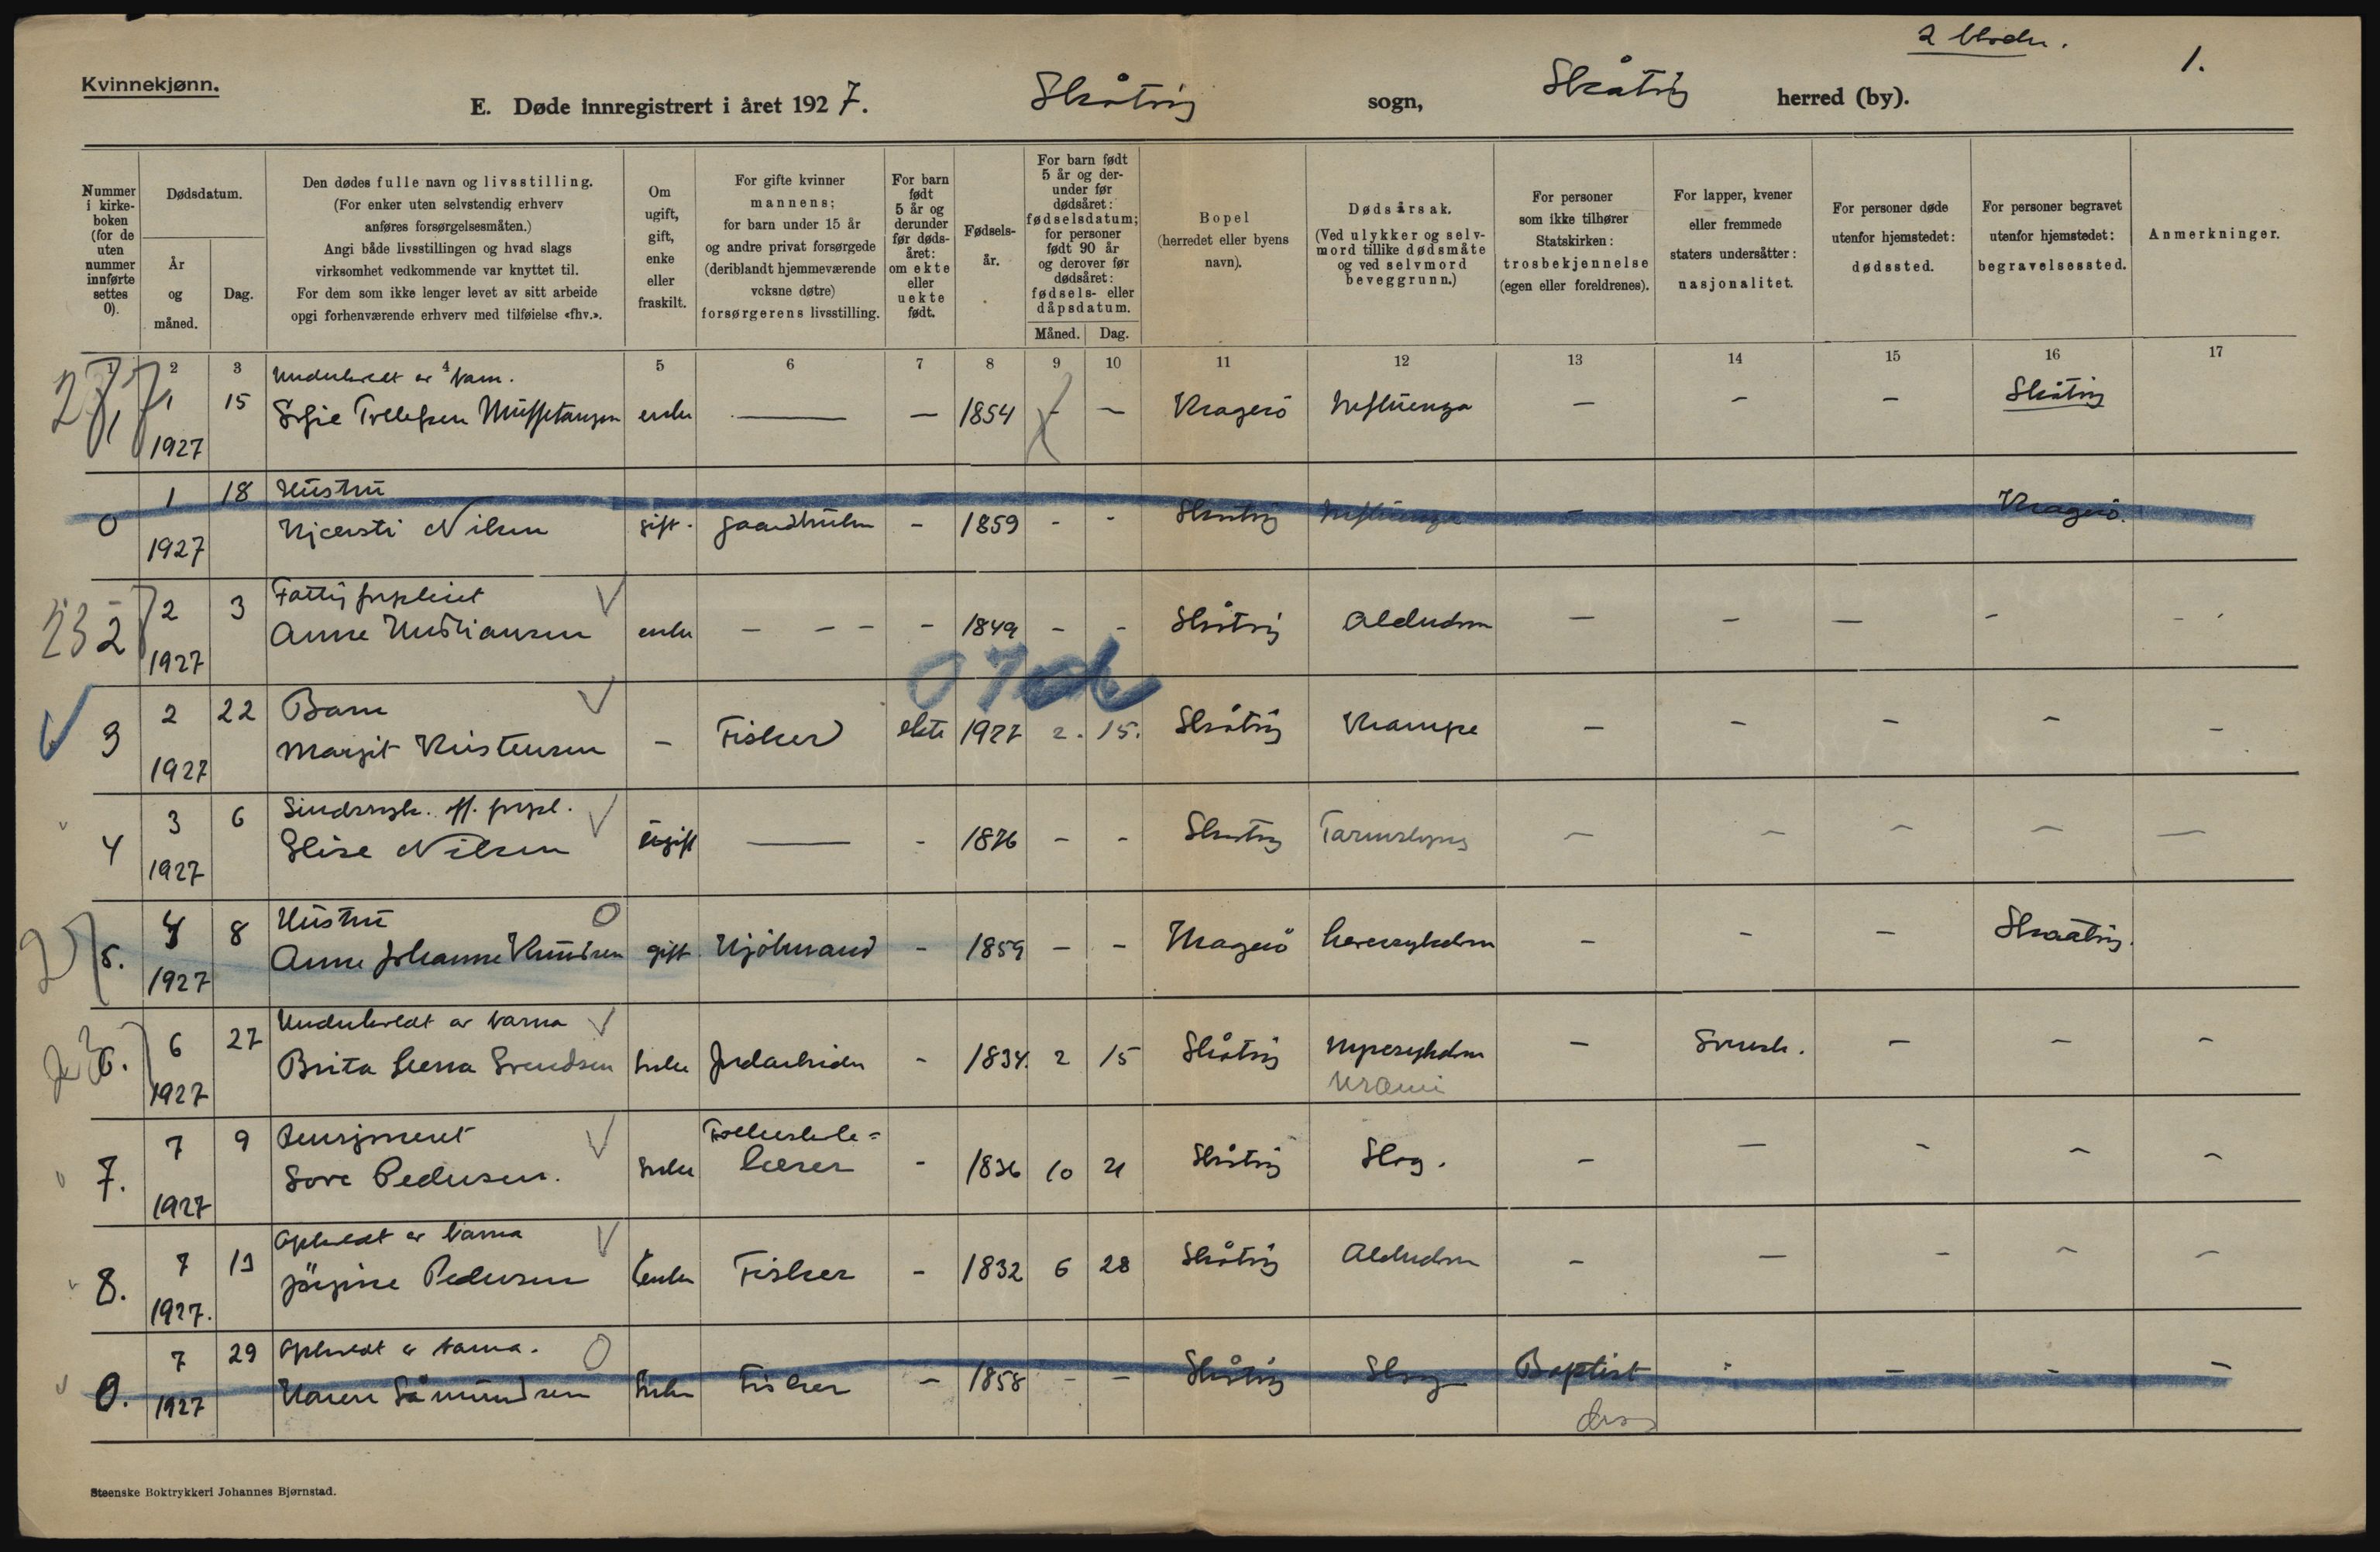 2 blader.
1.
Kvinnekjønn.
E. Døde innregistrert i året 1927. Skåtøy sogn, Skåtøy herred (by).
Nummer i kirkeboken (for de uten nummer innførte settes 0).
Dødsdatum.
År og måned.
Dag.
Den dødes fulle navn og livsstilling.
(For enker uten selvstendig erhverv anføres forsørgelsesmåten.)
Angi både livsstillingen og hvad slags virksomhet vedkommende var knyttet til.
For dem som ikke lenger levet av sitt arbeide opgi forhenværende erhverv med tilføielse «fhv.».
Om ugift, gift, enke eller fraskilt.
For gifte kvinner mannens; for barn under 15 år og andre privat forsørgede (deriblandt hjemmeværende voksne døtre) forsørgerens livsstilling.
For barn født 5 år og derunder før dødsåret: om ekte eller uekte født.
Fødselsår.
For barn født 5 år og derunder før dødsåret: fødselsdatum; for personer født 90 år og derover før dødsåret: fødsels- eller dåpsdatum.
Måned. Dag.
Bopel (herredet eller byens navn).
Dødsårsak. (Ved ulykker og selvmord tillike dødsmåte og ved selvmord beveggrunn.)
For personer som ikke tilhører Statskirken: trosbekjennelse (egen eller foreldrenes).
For lapper, kvener eller fremmede staters undersåtter: nasjonalitet.
For personer døde utenfor hjemstedet: dødssted.
For personer begravet utenfor hjemstedet: begravelsessted.
Anmerkninger.
1 2 3 4 5 6 7 8 9 10 11 12 13 14 15 16 17
Underholdt av barn.
1 15 Sofie Tollefsen enke — — 1854 - - Kragerö Influenza — - - Skåtöy
1927
1 18 Hustru
0 Kjersti Nilsen gift. gaardbruker - 1859 - - Skåtöy Influenza - - - Kragerö.
1927
2 3 Fattigforpleiet
2 Anne Kristiansen enke - - - - 1849 - - Skåtöy Alderdom - - - - -
1927
2 22 Barn
3 Margit Kristensen - Fisker ekte 1927 2. 15. Skåtöy Krampe - - - - -
1927
3 6 Sindssyk. off. forpl.
4 Elise Nilsen ugift — - 1876 - - Skåtöy Tarmslyng - - - - -
1927
4 8 Hustru
5. Anne Johanne Knudsen gift Kjöbmand - 1859 - - Kragerö Leversykdom - - - Skaatöy.
1927
6 27 Underholdt av barna
6. Brita Lena Svendsen Enke Jordarbeider - 1834. 2 15 Skåtöy Nyresykdom - Svensk. - - -
1927 Uræmi
7 9 Pensjonert Folkeskole=
7. Sove Pedersen. Enke lærer - 1836 10 21 Skåtöy Slag. - - - - -
1927
7 13 Opholdt av barna
8. Jörgine Pedersen Enke Fisker - 1832 6 28 Skåtöy Alderdom - - - - -
1927.
7 29 Opholdt av barna.
0. Karen Såmundsen Enke Fisker - 1858 - - Skåtöy Slag Baptist - - - -
1927 diss
Steenske Boktrykkeri Johannes Bjørnstad.